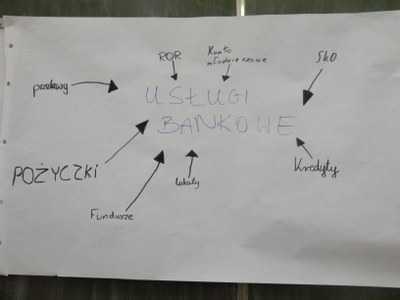 ROR
Konto
młodzieżowe
SKO
przelewy
USŁUGI
BANKOWE
POŻYCZKI
Fundusze
lokaty
Kredyty